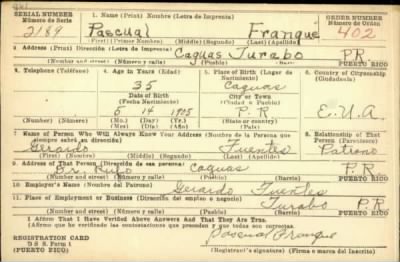 SERIAL NUMBER 1. Name (Print) Nombre (Letra de Imprenta) ORDER NUMBER
Número de Serie Número de Orden
2189 Pascual Franqué 402
(First) (Primer Nombre) (Middle) (Segundo) (Last) (Apellido)
2. Address (Print) Dirección (Letra de Imprenta)
Caguas Turabo P R
(Number and street) (Número y calle) (Town) (Pueblo) (Barrio) PUERTO RICO
3. Telephone (Teléfono) 4. Age in Years (Edad) 5. Place of Birth (Lugar de Nacimiento) 6. Country of Citizenship (Ciudadanía)
35 Caguas
Date of Birth City or Town
(Fecha Nacimiento) (Ciudad o Pueblo)
5 14 1905 P. R E.U.A
(Number) (Número) (Mo.) (Day) (Yr.) State or country
(Mes) (Día) (Año)
7. Name of Person Who Will Always Know Your Address (Nombre de la Persona que siempre sabrá su dirección) 8. Relationship of That Person (Parentesco)
Gerardo Fuentes Patrono
(First) (Nombre) (Middle) (Segundo) (Last) (Apellido)
9. Address of That Person (Dirección de esa persona)
Caguas P R
(Number and street) (Número y calle) (Town) (Pueblo) (Barrio) PUERTO RICO
10. Employer's Name (Nombre del Patrono)
Gerardo Fuentes
11. Place of Employment or Business (Dirección del empleo o negocio)
Turabo P R
(Number and street) (Número y calle) (Town) (Pueblo) (Barrio) PUERTO RICO
I Affirm That I Have Verified Above Answers And That They Are True.
(Afirmo que he verificado las contestaciones que preceden y que son todas verdad.)
Pascual Franque
REGISTRATION CARD
D S S. Form 1
(PUERTO RICO) (Registrant's signature) (Firma o marca del Inscrito)